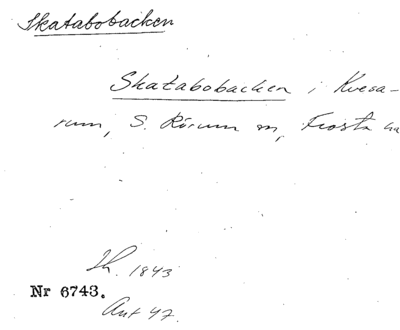 Skatabobacken
Skatabobacken i Kvesa-
rum, S. Rörum sn, Frosta hd
Th. 1843
Nr 6743.
Ant 47.